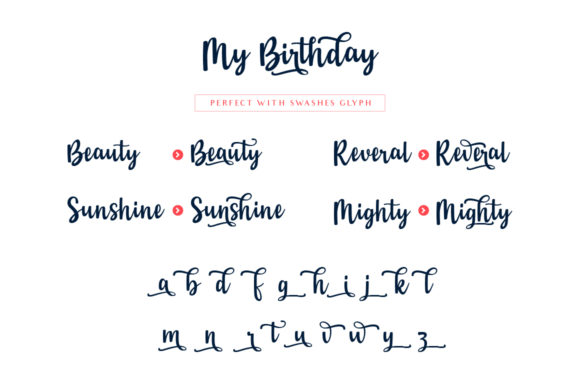 My Birthday
PERFECT WITH SWASHES GLYPH
Beauty Beauty Reveral Reveral
Sunshine Sunshine Mighty Mighty
a b d f g h i j k l
m n r t u v w y z